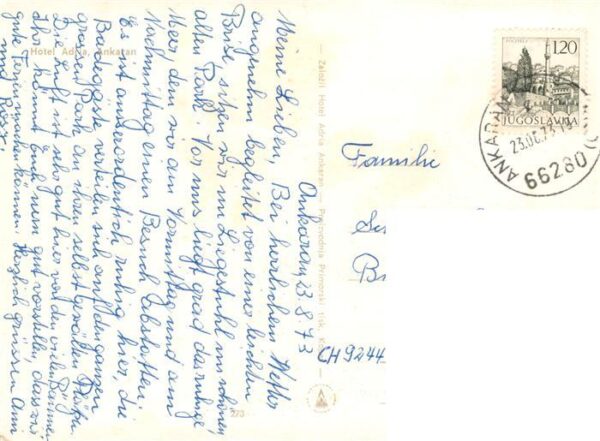 Ankaran, 23 8 73
Meine Lieben, Bei herrlichem Wetter
angenehm begleitet von einer leichten
Brise, sitzen wir im Liegestuhl im schönen
alten Park. Vor uns liegt grad das ruhige
Meer, dem wir am Vormittag und am
Nachmittag einen Besuch abstatten.
Es ist ausserordentlich ruhig hier, die
Badegäste verteilen sich auf den ganzen
grossen Park an ihren selbst gewählten
Die Luft ist sehr gut hier von den vielen Bäumen
Ihr könnt Euch nun gut vorstellen, dass wir
gute Ferien machen können. Herzlich grüssen Ami
und Rösy.
Hotel Adria, Ankaran
Založil Hotel Adria Ankaran — Proizvodnja Primorski tisk, K
273
1.20
JUGOSLAVIJA
ANKARAN
66280
Familie
Se
B
CH 9244